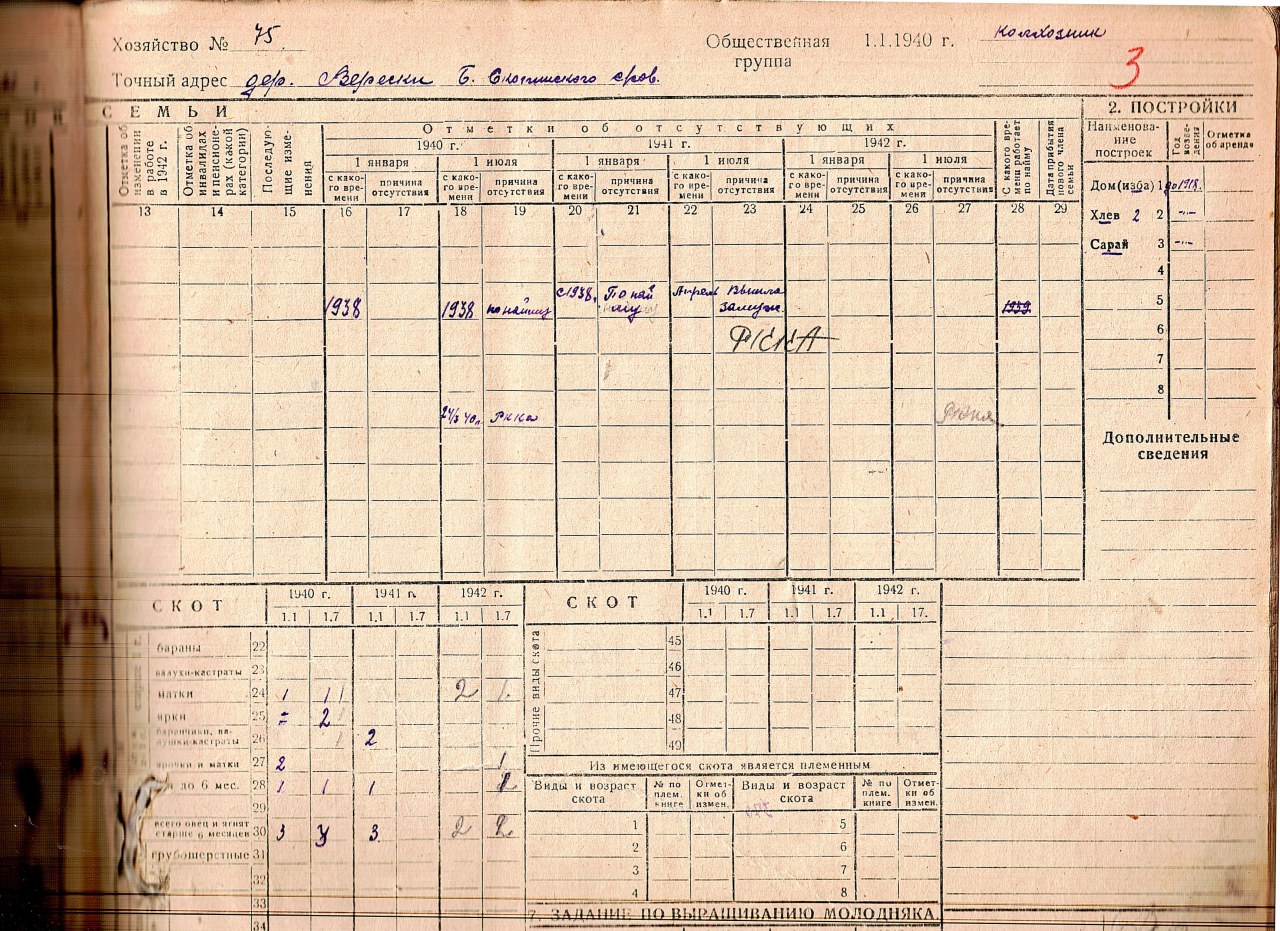 Хозяйство № 75.
Общественная группа 1.1.1940 г. колхозник
3
Точный адрес дер. Верески Б. Скопинского сров.
СЕМЬИ
2. ПОСТРОЙКИ
Отметка об изменении в работе в 1942 г.
Отметка об инвалидах и пенсионерах (какой категории)
Последующие изменения
Отметки об отсутствующих
1940 г. 1941 г. 1942 г.
1 января 1 июля 1 января 1 июля 1 января 1 июля
с како-го вре-мени причина отсутствия с како-го вре-мени причина отсутствия с како-го вре-мени причина отсутствия с како-го вре-мени причина отсутствия с како-го вре-мени причина отсутствия с како-го вре-мени причина отсутствия
С какого вре-мени работает по найму
Дата прибытия нового члена семьи
Наименова-ние построек Год возве-дения Отметка об аренде
13 14 15 16 17 18 19 20 21 22 23 24 25 26 27 28 29
Дом (изба) 1 до 1918.
Хлев 2 2 -"-
Сарай 3 -"-
4
5
6
7
8
1938 1938 по найму с 1938. По най му Апрель Вышла замуж. 1939
РККА
24/3 40г. РККА
Дополнительные сведения
СКОТ 1940 г. 1941 г. 1942 г.
1.1 1.7 1.1 1.7 1.1 1.7
бараны 22
валухи-кастраты 23
матки 24 1 1 2 1
ярки 25 = 2
баранчики, ва-лушки-кастраты 26 2
ярочки и матки 27 2 1
до 6 мес. 28 1 1 1
29
всего овец и ягнят старше 6 месяцев 30 3 3 3 2 2
грубошерстные 31
32
33
34
СКОТ 1940 г. 1941 г. 1942 г.
1.1 1.7 1.1 1.7 1.1 17.
Прочие виды скота
45
46
47
48
49
Из имеющегося скота является племенным
Виды и возраст скота № по плем. книге Отмет-ки об измен. Виды и возраст скота № по плем. книге Отмет-ки об измен.
1 5
2 6
3 7
4 8
7. ЗАДАНИЕ ПО ВЫРАЩИВАНИЮ МОЛОДНЯКА.